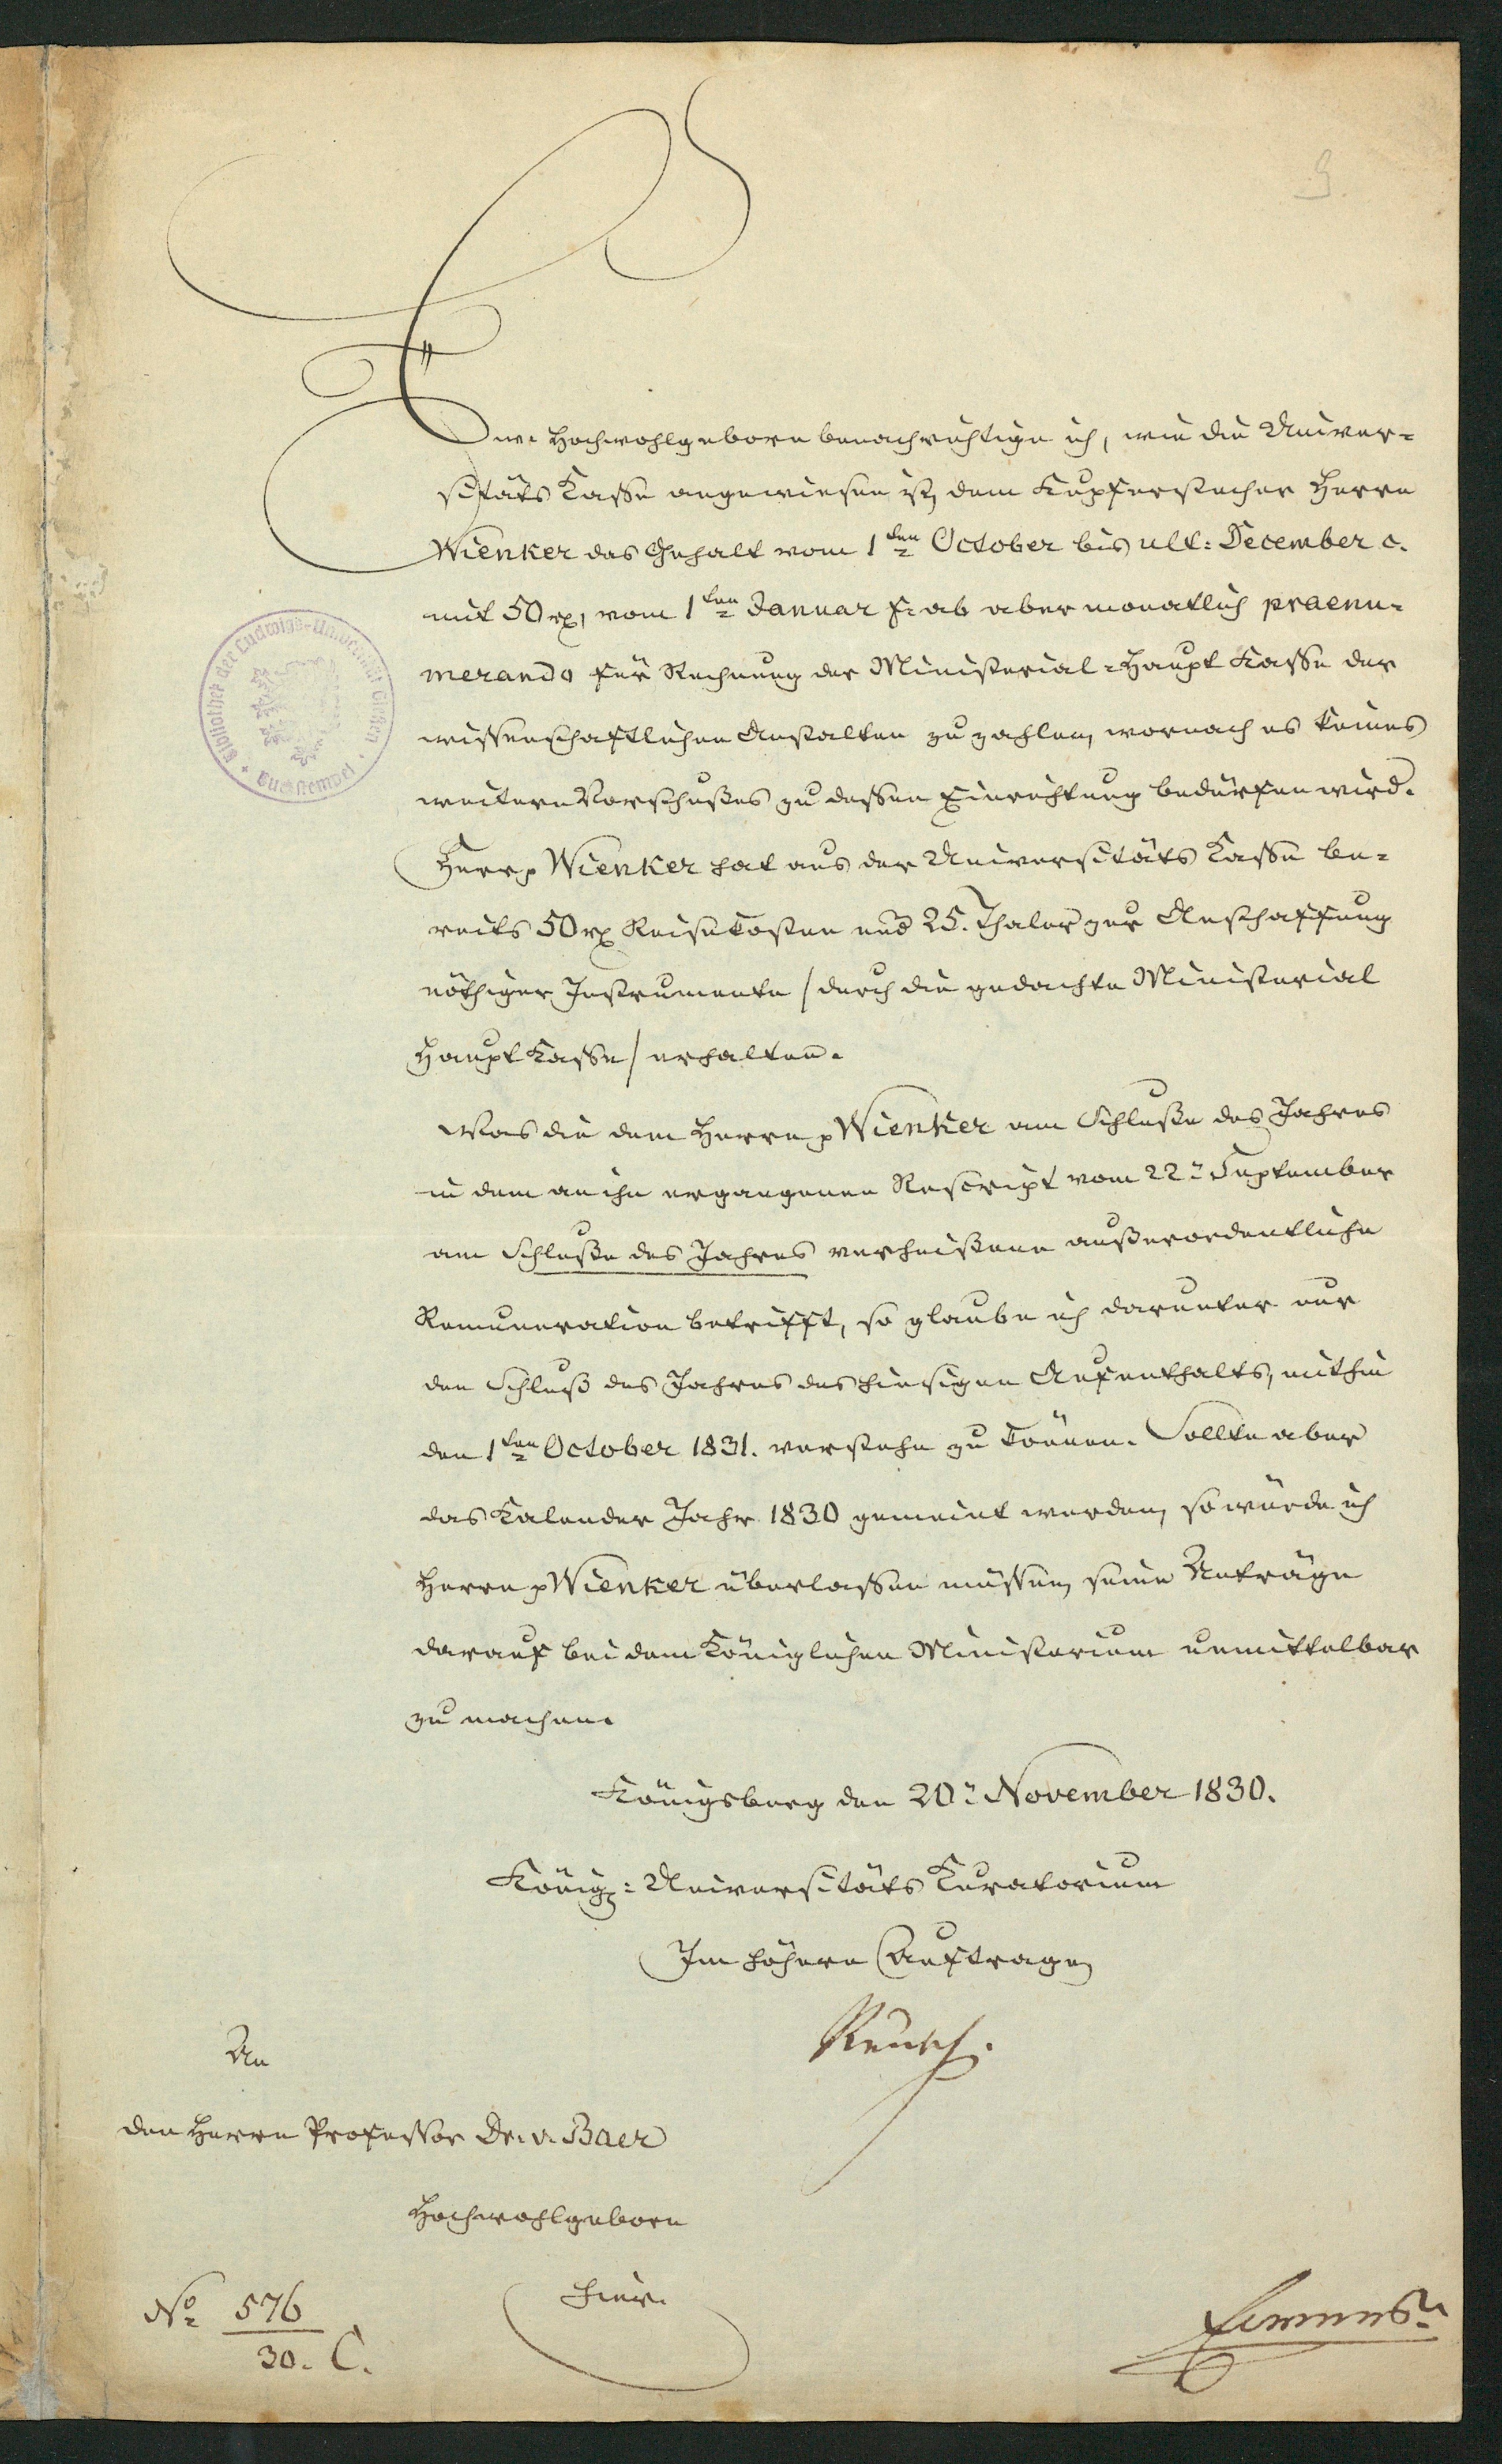 9.
Ew. Hochwohlgeborn benachrichtige ich, wie die Univer-
sitäts Kasse angewiesen ist, dem Kupferstecher Herrn
Wienker das Gehalt vom 1ten October bis ult: December c.
mit 50 rx, vom 1ten Januar f. ab aber monatlich praenu-
merando für Rechnung der Ministerial-Haupt Kasse der
wissenschaftlichen Anstalten zu zahlen, wornach es keines
weitern Vorschußes zu dessen Einrichtung bedürfen wird.
Herr p Wienker hat aus der Universitäts Kasse be-
reits 50 rx Reisekosten und 25. Thaler zur Anschaffung
nöthiger Instrumente /durch die gedachte Ministerial
Haupt Kasse/ erhalten.
Was die dem Herrn p Wienker am Schluße des Jahres
in dem an ihn ergangenen Rescript vom 22t September
am Schluße des Jahres verheißene außerordentliche
Remuneration betrifft, so glaube ich darunter nur
den Schluß des Jahres des hiesigen Aufenthalts, mithin
den 1ten October 1831. verstehn zu können. Sollte aber
das Kalender Jahr 1830 gemeint werden, so würde ich
Herrn p Wienker überlassen müssen, seine Anträge
darauf bei dem Königlichen Ministerium unmittelbar
zu machen.
Königsberg den 20t November 1830.
Königl: Universitäts Kuratorium
Im höhern Auftrage
Reusch.
An
den Herrn Professor Dr. v. Baer
Hochwohlgeborn
hier.
No 576
30. C.
Bibliothek der Ludwigs-Universität Gießen